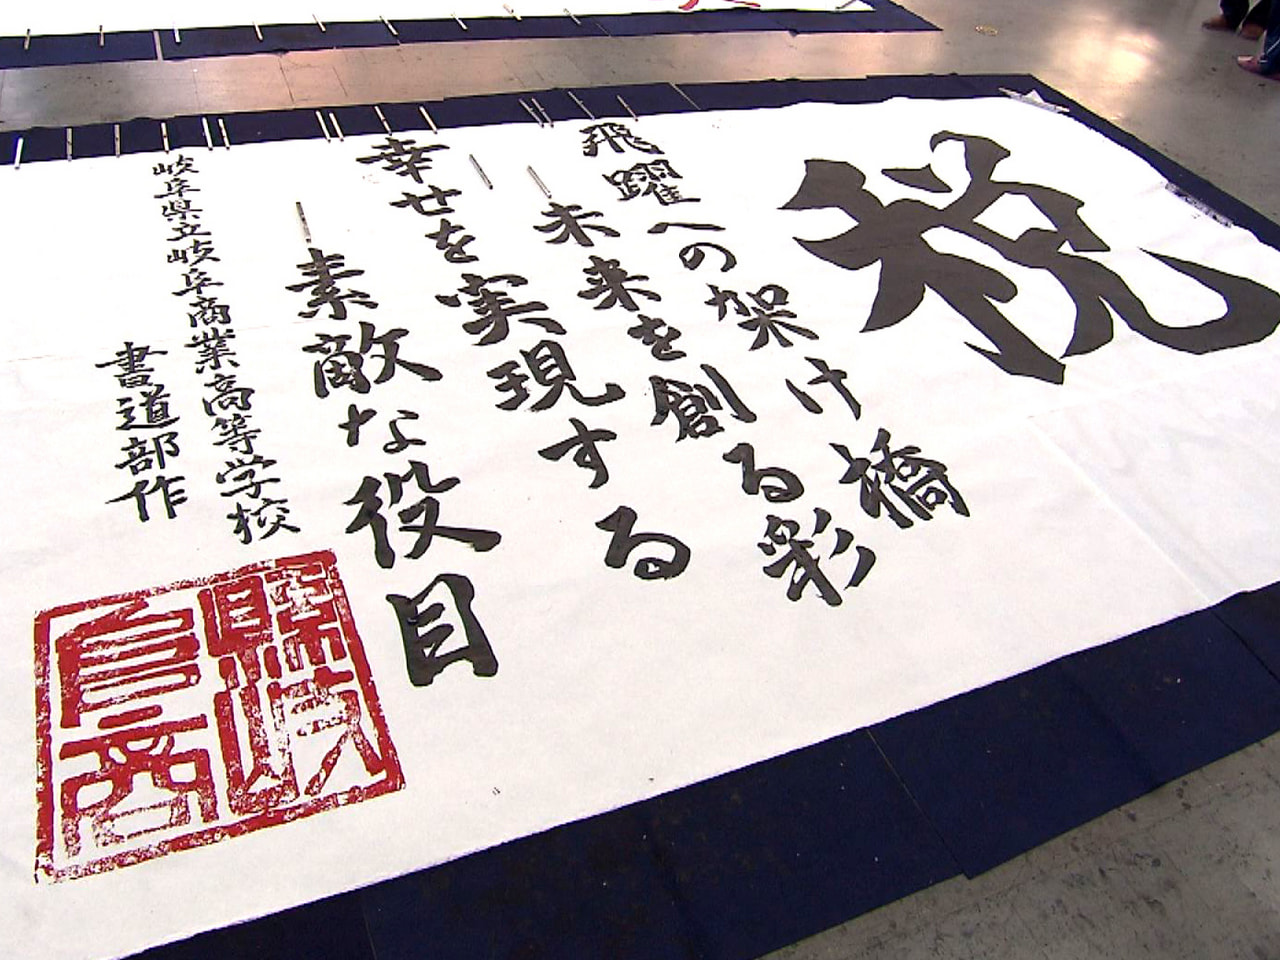 税
飛躍への架け橋
未来を創る彩
幸せを実現する
素敵な役目
岐阜県立岐阜商業高等学校
書道部作
縣岐阜商